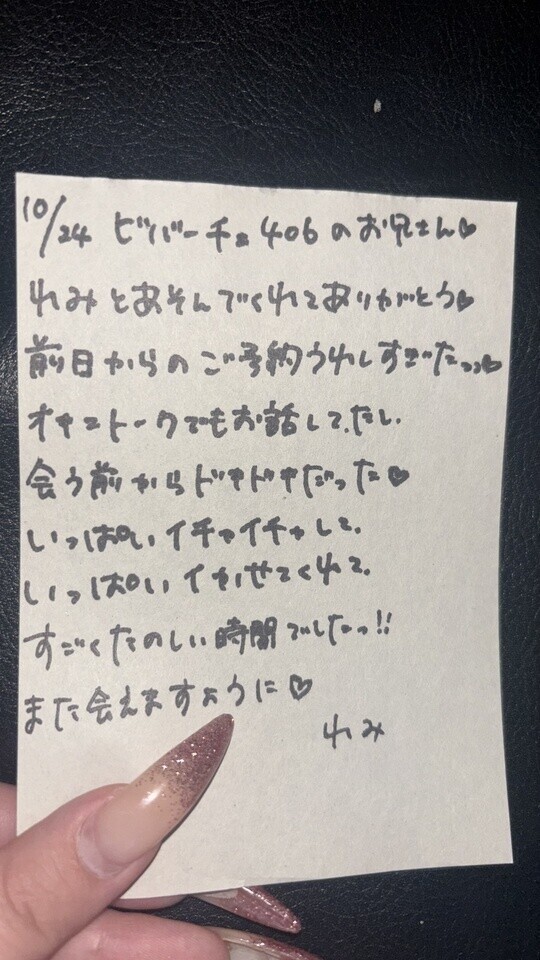 10/24 ビバーチェ 406のお兄さん♡
れみとあそんでくれてありがとう♡
前日からのご予約うれしすぎたっっ♡
オキニトークでもお話してたし、
会う前からドキドキだった♡
いっぱいイチャイチャして、
いっぱいイかせてくれて、
すごくたのしい時間でしたっ!!
また会えますように♡
れみ